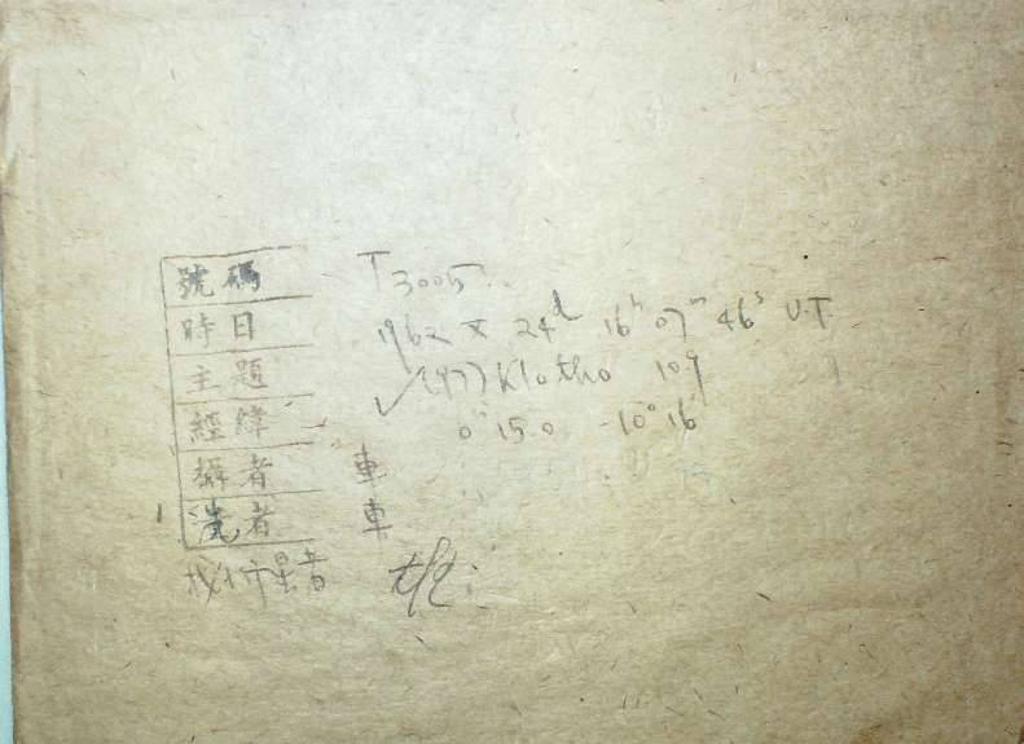 號碼 T 3005
時日 1962 X 24d 16h 07m 46s U.T.
主題 ✓ (97) Klotho 10.9
經緯 0h 15.0 -10° 16'
攝者 車
洗者 車
找行星者